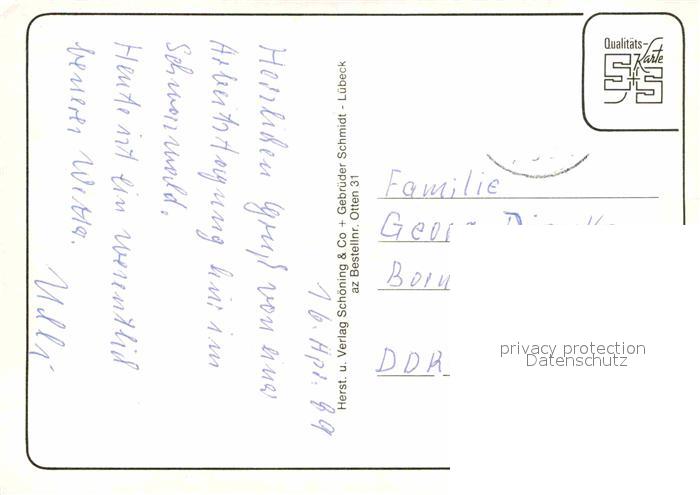 16. Apr. 89
Herzlichen Gruß von einer
Arbeitstagung hier im
Schwarzwald.
Heute ist ein wesentlich
besseres Wetter.
Ulli
Herst. u. Verlag Schöning & Co + Gebrüder Schmidt - Lübeck
az Bestellnr. Otten 31
Qualitäts-
Karte
S+S
Familie
DDR
privacy protection
Datenschutz